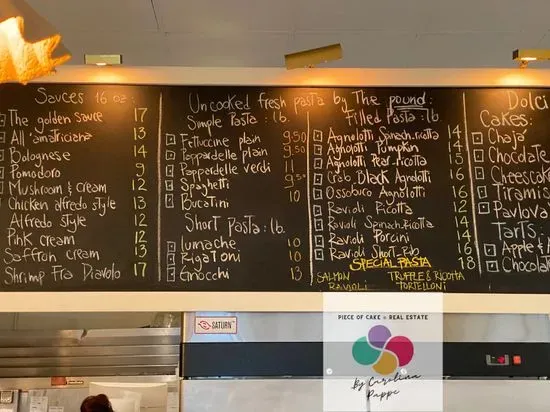 Sauces 16 oz:
The golden sauce 17
All amatriciana 13
Bolognese 14
Pomodoro 9
Mushroom & cream 12
Chicken alfredo style 13
Alfredo style 12
Pink cream 12
Saffron cream 13
Shrimp Fra Diavolo 17
Uncooked fresh pasta by The pound:
Simple Pasta: lb.
Fettuccine plain 9.50
Pappardelle plain 9.50
Pappardelle verdi 11
Spaghetti 9.50
Bucatini 10
Short Pasta: lb.
lumache 10
Rigatoni 10
Gnocchi 13
Filled Pasta: lb
Agnolotti Spinach-ricotta 14
Agnolotti Pumpkin 14
Agnolotti Pear-ricotta
Crab Black Agnolotti
Ossobuco Agnolotti 16
Ravioli Ricotta 12
Ravioli Spinach-ricotta 14
Ravioli Porcini 16
Ravioli Short-Rib 18
SPECIAL PASTA
SALMON RAVIOLI
TRUFFLE & RICOTTA TORTELLONI
Dolci
Cakes:
Chajá
Chocolate
Cheesecak
Tiramis
Pavlova
Tarts:
Apple &
Chocolat
SATURN
PIECE OF CAKE & REAL ESTATE
By Carolina Pappe